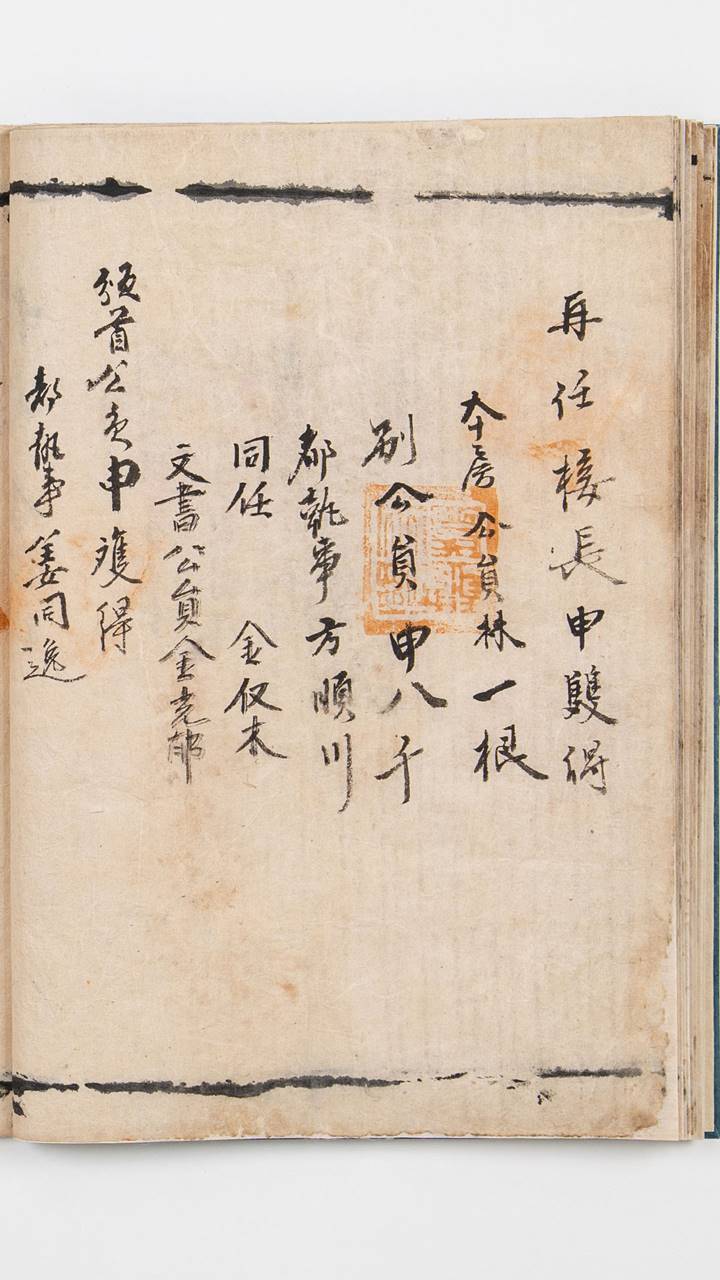 再任接長申雙得
本房公員林一根
別公員申八千
都執事方順川
同任 金仅木
文書公員金光郁
領首公員申雙得
都執事姜同逸